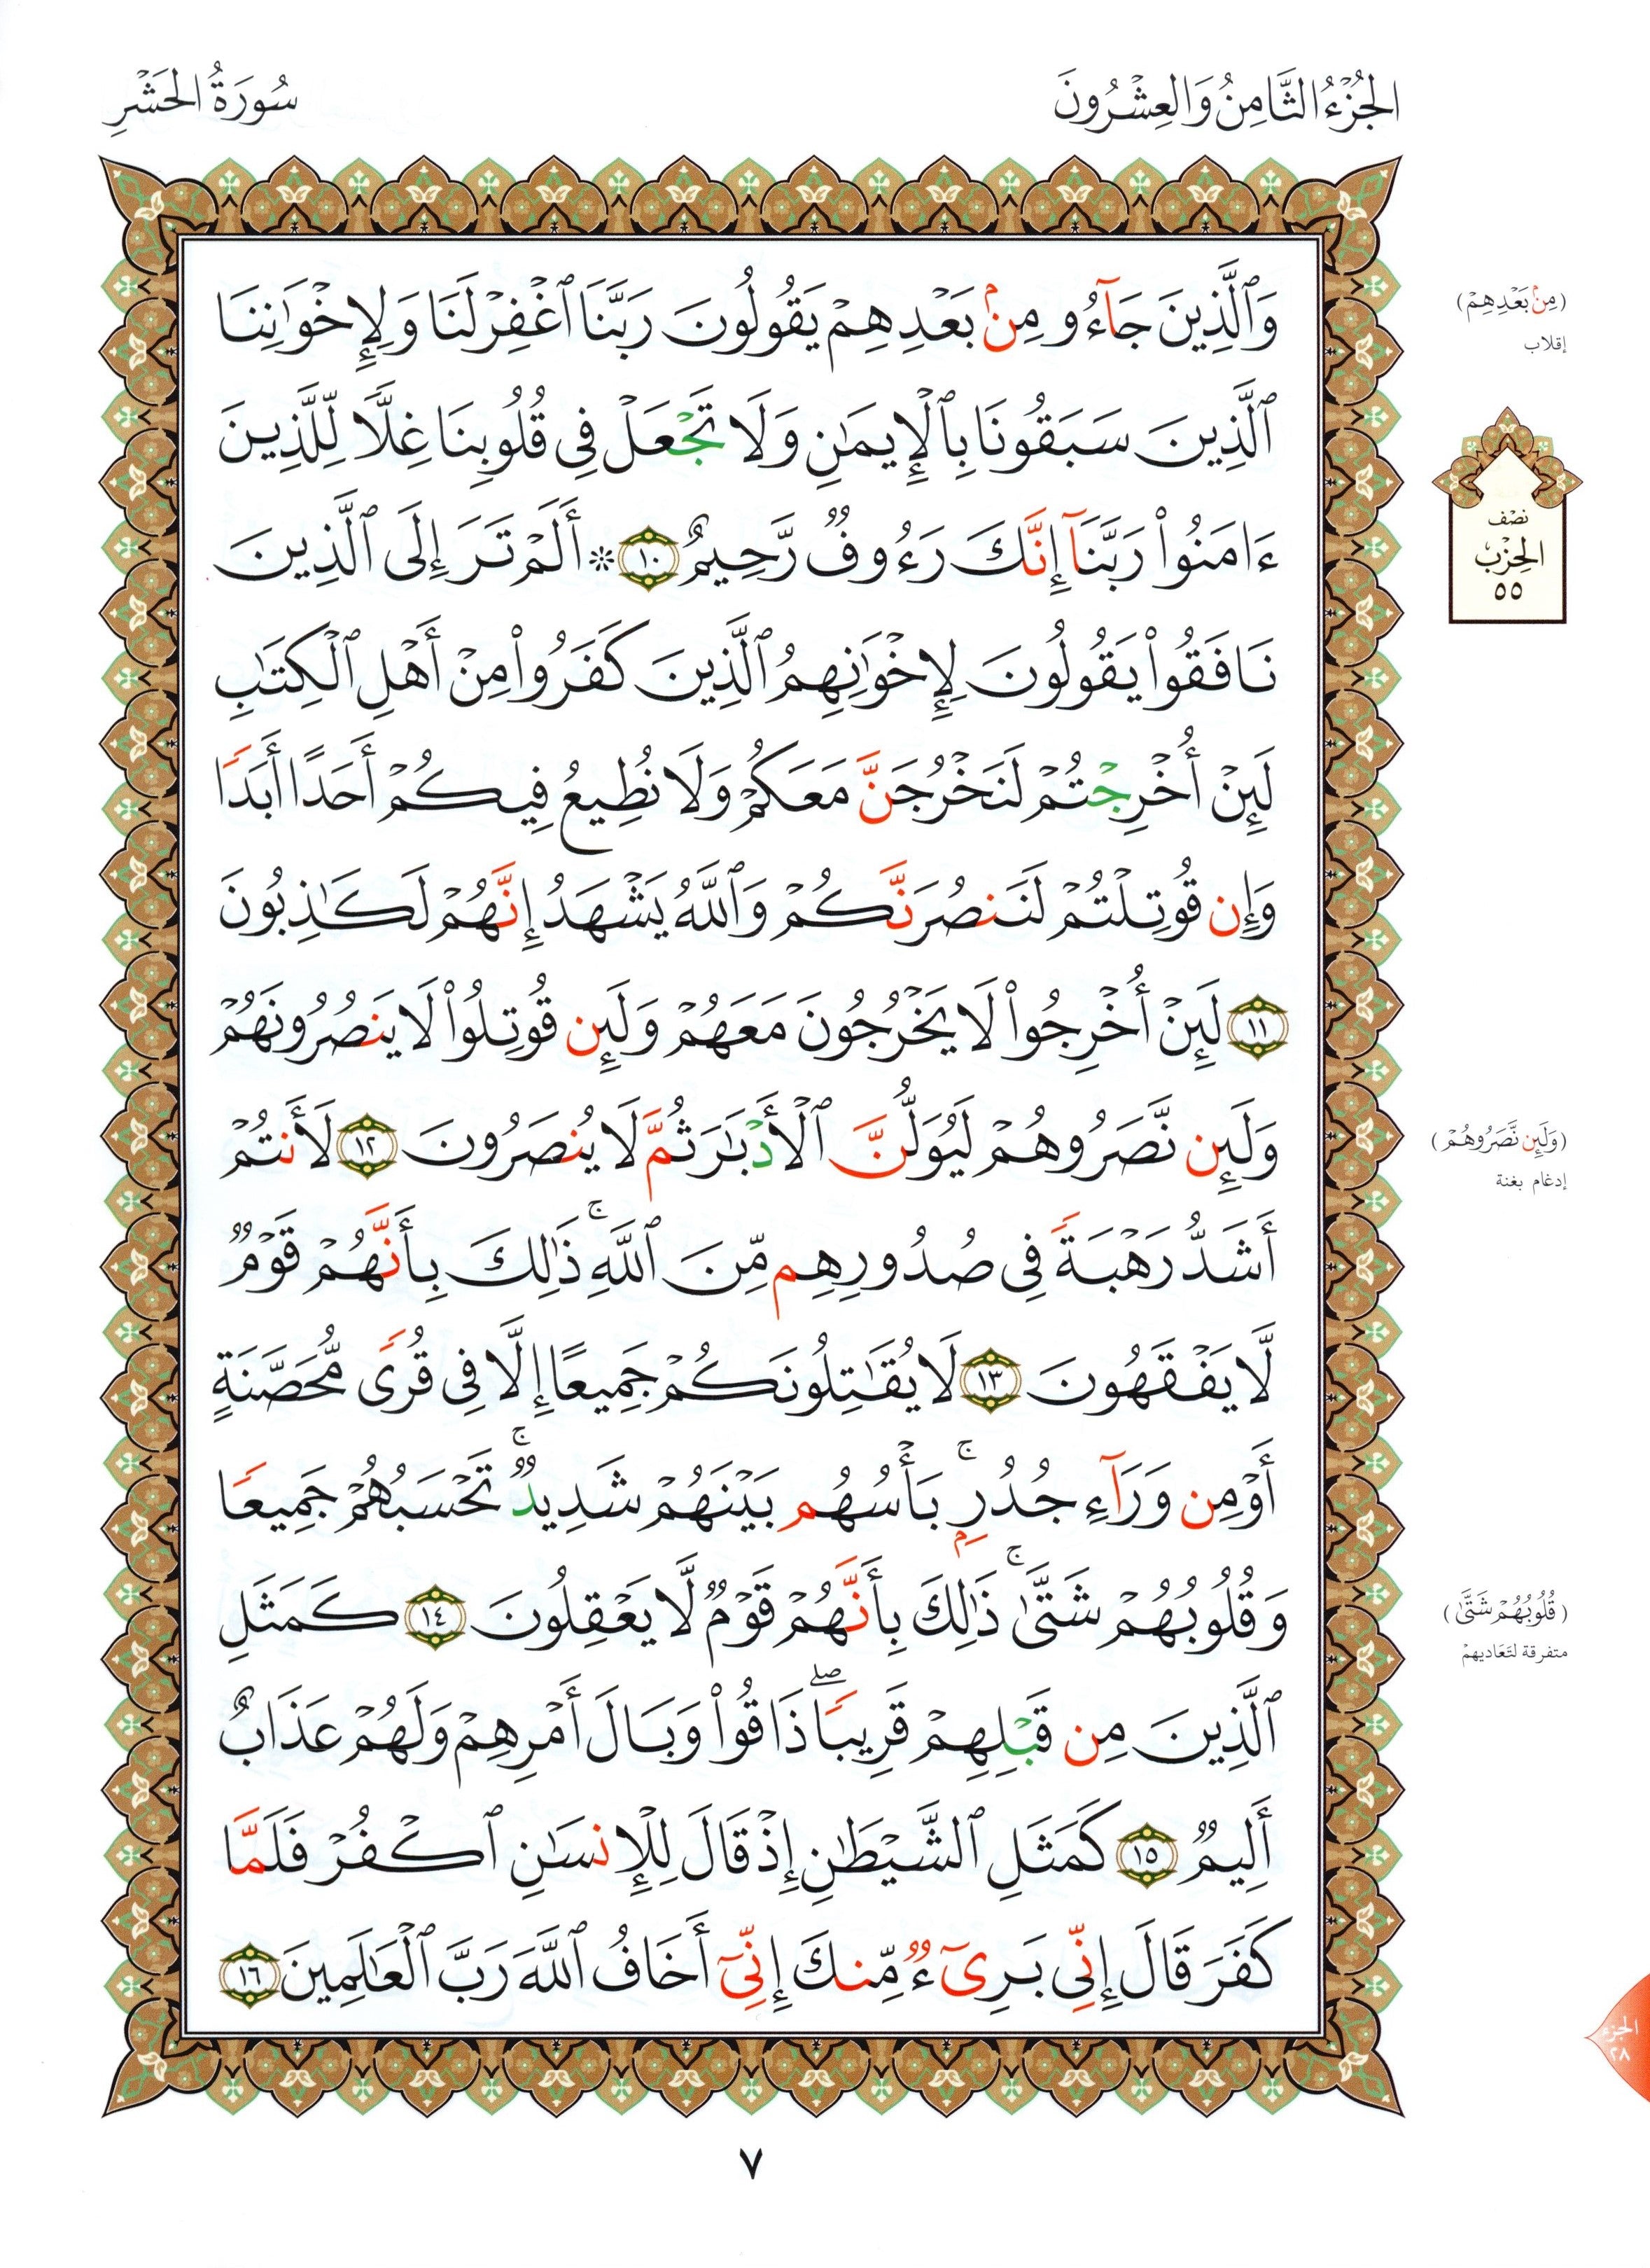 الجُزْءُ الثَّامِنُ وَالعِشْرُونَ
سُورَةُ الحَشْرِ
وَٱلَّذِينَ جَآءُو مِنۢ بَعْدِهِمْ يَقُولُونَ رَبَّنَا ٱغْفِرْ لَنَا وَلِإِخْوَٰنِنَا
ٱلَّذِينَ سَبَقُونَا بِٱلْإِيمَٰنِ وَلَا تَجْعَلْ فِى قُلُوبِنَا غِلًّا لِّلَّذِينَ
ءَامَنُوا۟ رَبَّنَآ إِنَّكَ رَءُوفٌ رَّحِيمٌ ١٠ * أَلَمْ تَرَ إِلَى ٱلَّذِينَ
نَافَقُوا۟ يَقُولُونَ لِإِخْوَٰنِهِمُ ٱلَّذِينَ كَفَرُوا۟ مِنْ أَهْلِ ٱلْكِتَٰبِ
لَئِنْ أُخْرِجْتُمْ لَنَخْرُجَنَّ مَعَكُمْ وَلَا نُطِيعُ فِيكُمْ أَحَدًا أَبَدًا
وَإِن قُوتِلْتُمْ لَنَنصُرَنَّكُمْ وَٱللَّهُ يَشْهَدُ إِنَّهُمْ لَكَٰذِبُونَ
١١ لَئِنْ أُخْرِجُوا۟ لَا يَخْرُجُونَ مَعَهُمْ وَلَئِن قُوتِلُوا۟ لَا يَنصُرُونَهُمْ
وَلَئِن نَّصَرُوهُمْ لَيُوَلُّنَّ ٱلْأَدْبَٰرَ ثُمَّ لَا يُنصَرُونَ ١٢ لَأَنتُمْ
أَشَدُّ رَهْبَةً فِى صُدُورِهِم مِّنَ ٱللَّهِ ۚ ذَٰلِكَ بِأَنَّهُمْ قَوْمٌ
لَّا يَفْقَهُونَ ١٣ لَا يُقَٰتِلُونَكُمْ جَمِيعًا إِلَّا فِى قُرًى مُّحَصَّنَةٍ
أَوْ مِن وَرَآءِ جُدُرٍۭ ۚ بَأْسُهُم بَيْنَهُمْ شَدِيدٌ ۚ تَحْسَبُهُمْ جَمِيعًا
وَقُلُوبُهُمْ شَتَّىٰ ۚ ذَٰلِكَ بِأَنَّهُمْ قَوْمٌ لَّا يَعْقِلُونَ ١٤ كَمَثَلِ
ٱلَّذِينَ مِن قَبْلِهِمْ قَرِيبًا ۖ ذَاقُوا۟ وَبَالَ أَمْرِهِمْ وَلَهُمْ عَذَابٌ
أَلِيمٌ ١٥ كَمَثَلِ ٱلشَّيْطَٰنِ إِذْ قَالَ لِلْإِنسَٰنِ ٱكْفُرْ فَلَمَّا
كَفَرَ قَالَ إِنِّى بَرِىٓءٌ مِّنكَ إِنِّىٓ أَخَافُ ٱللَّهَ رَبَّ ٱلْعَٰلَمِينَ ١٦
(مِنۢ بَعْدِهِمْ)
إقلاب
نصف
الحِزْب
٥٥
(وَلَئِن نَّصَرُوهُمْ)
إدغام بغنة
(قُلُوبُهُمْ شَتَّىٰ)
متفرقة لتَعَاديهمْ
الجزء
٢٨
٧